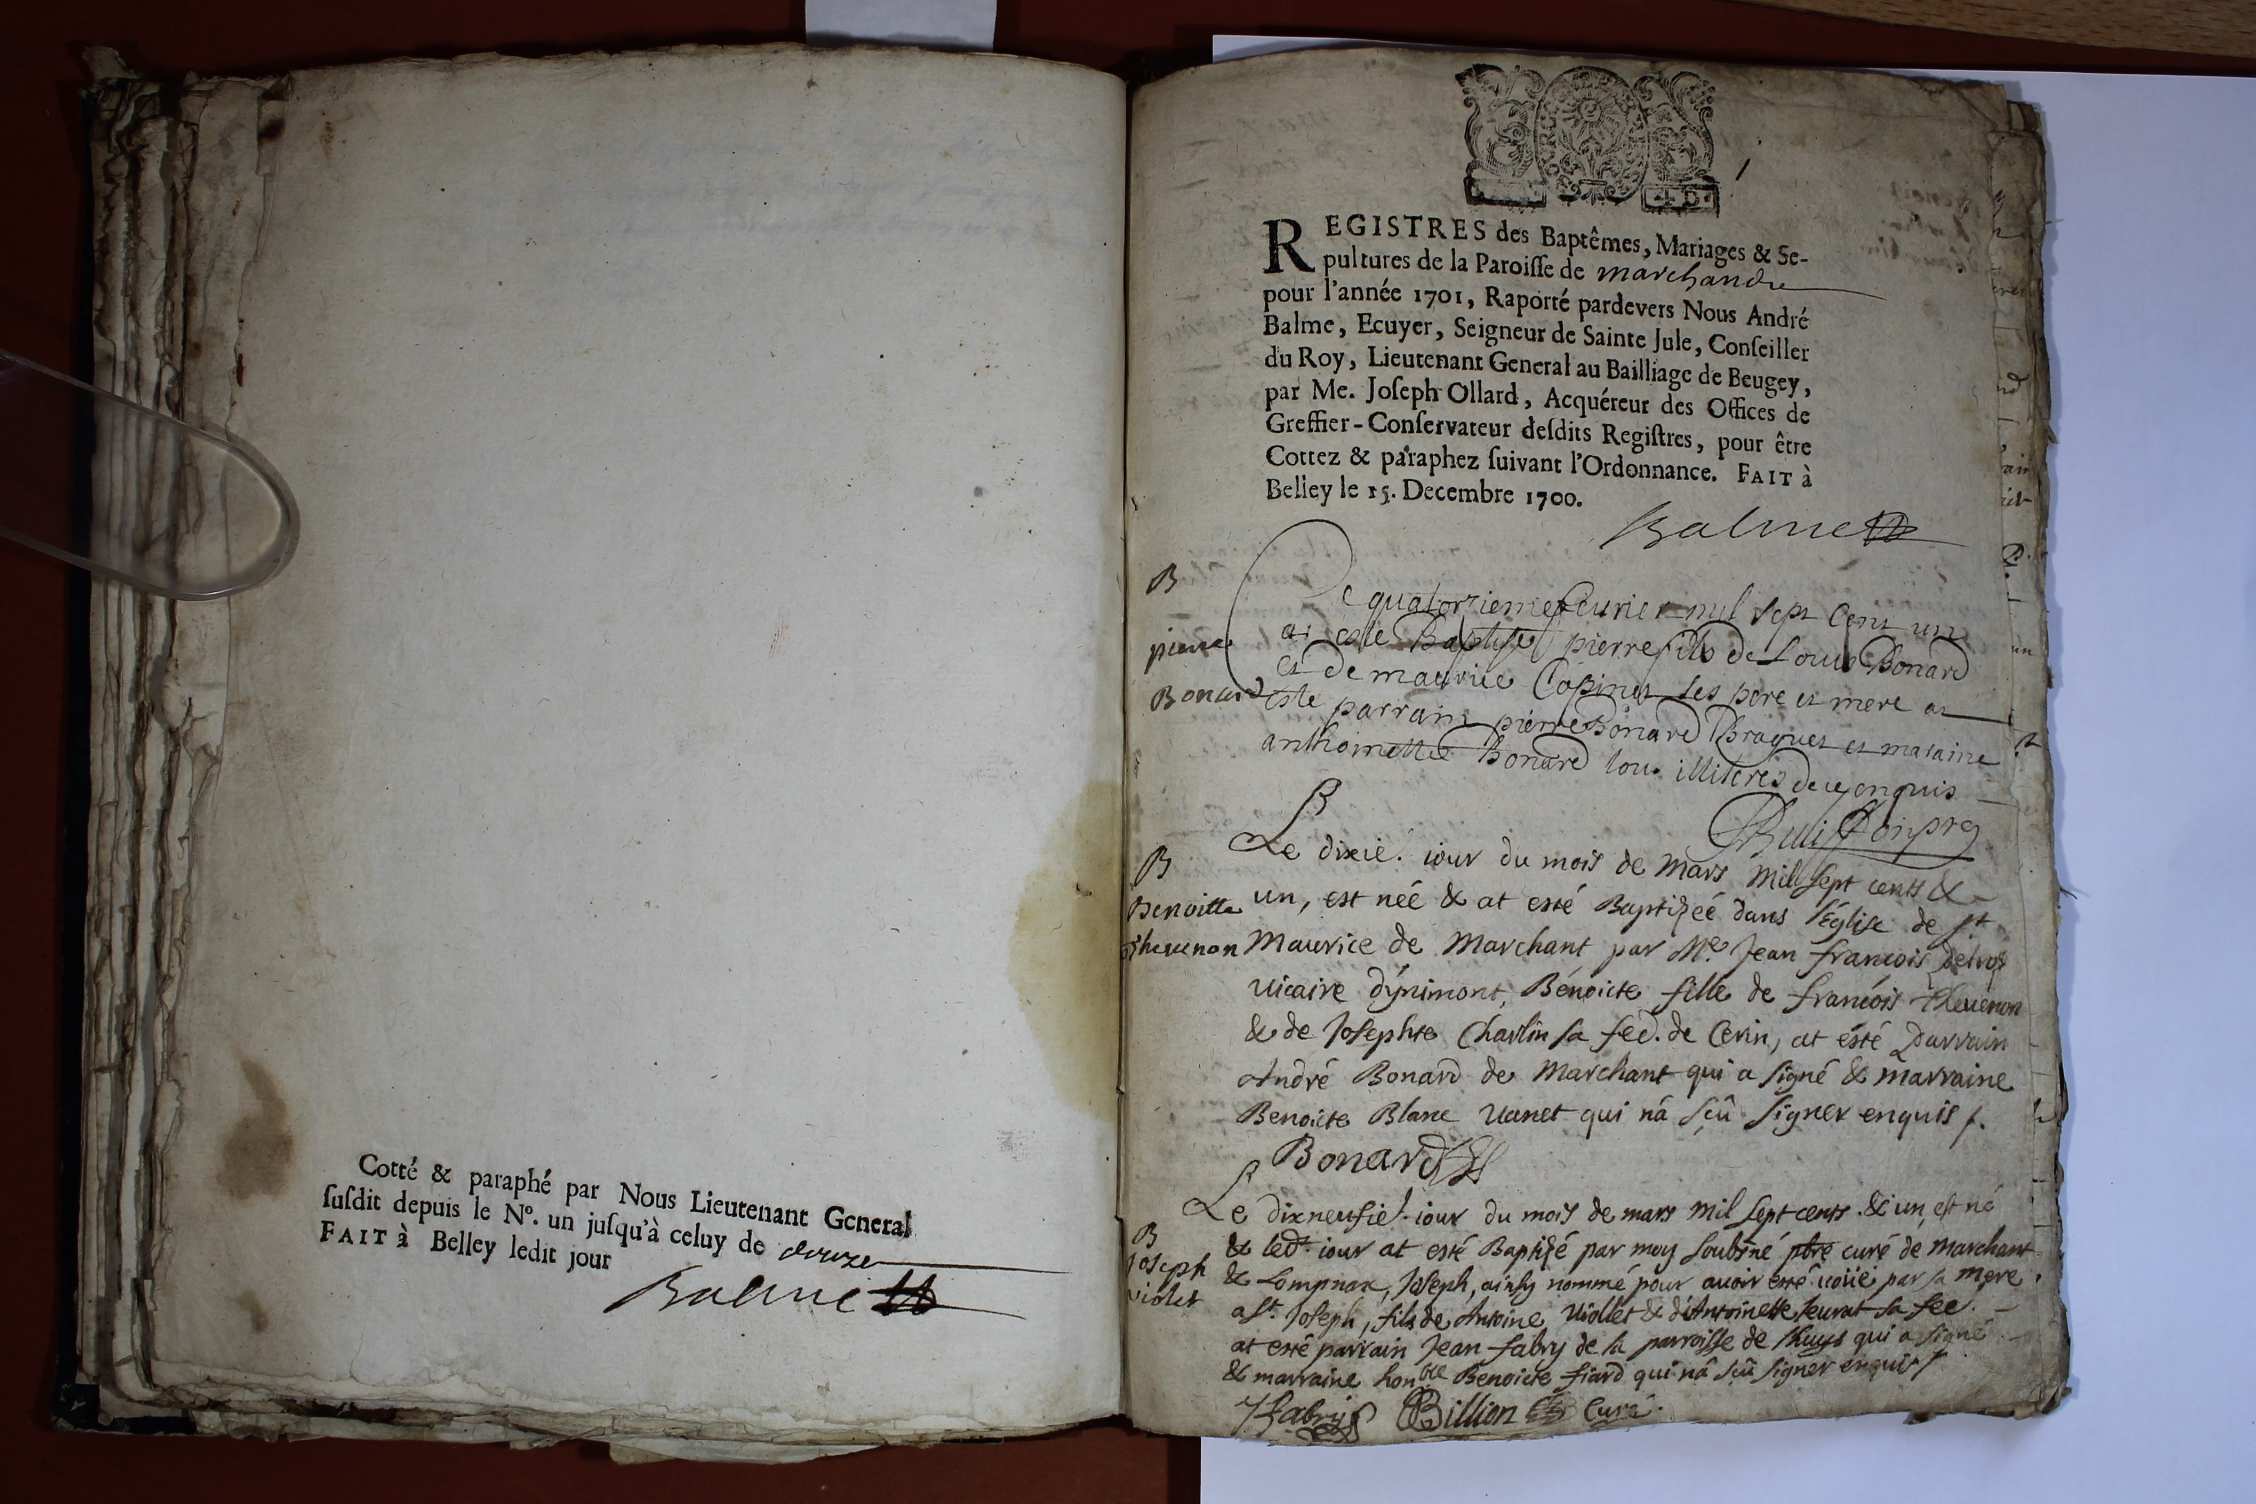 Cotté & paraphé par Nous Lieutenant General
suſdit depuis le N°. un juſqu'à celuy de douze
FAIT à Belley ledit jour
Balme
REGISTRES des Baptêmes, Mariages & Se-
pultures de la Paroiſſe de marchand
pour l'année 1701, Raporté pardevers Nous André
Balme, Ecuyer, Seigneur de Sainte Jule, Conſeiller
du Roy, Lieutenant General au Bailliage de Beugey,
par Me. Joſeph Ollard, Acquéreur des Offices de
Greffier-Conſervateur deſdits Regiſtres, pour être
Cottez & paraphez ſuivant l'Ordonnance. FAIT à
Belley le 15. Decembre 1700.
Balme
B
pierre
Bonard
Ce quatorzieme feurier mil sept Cent un
at esté Baptisé pierre fils de Louis Bonard
et de maurice Copinet ses pere et mere at
esté parrain pierre Bonard Braquet et maraine
anthoinette Bonard tous illiteres de ce enquis
B
Benoitte
Thevenon
Le dixié. iour du mois de Mars mil sept cents &
un, est néé & at esté Baptizéé dans l'Église de st
Maurice de Marchant par Mre Jean francois
vicaire d'ynimont, Bénoicte fille de francois Thevenon
& de Josephte Charlin sa fee. de Cerin, at esté Parrain
André Bonard de Marchant qui a signé & marraine
Benoicte Blanc Vanet qui nâ sçû signer enquis
Bonard
B
Joseph
violet
Le dixneufié. iour du mois de mars mil sept cents & un est né
& ledt. iour at esté Baptizé par moy soubsné pbre curé de Marchant
& Lompnax, Joseph, ainsy nommé pour avoir esté voüé par sa mere
a st. Joseph, fils de Antoine Viollet & d'Antoinette Jeurat sa fee.
at esté parrain Jean fabry de la parroisse de qui a signé
& marraine honble Benoicte fiard qui nâ sçû signer enquis
Jfabry Billion Curé.